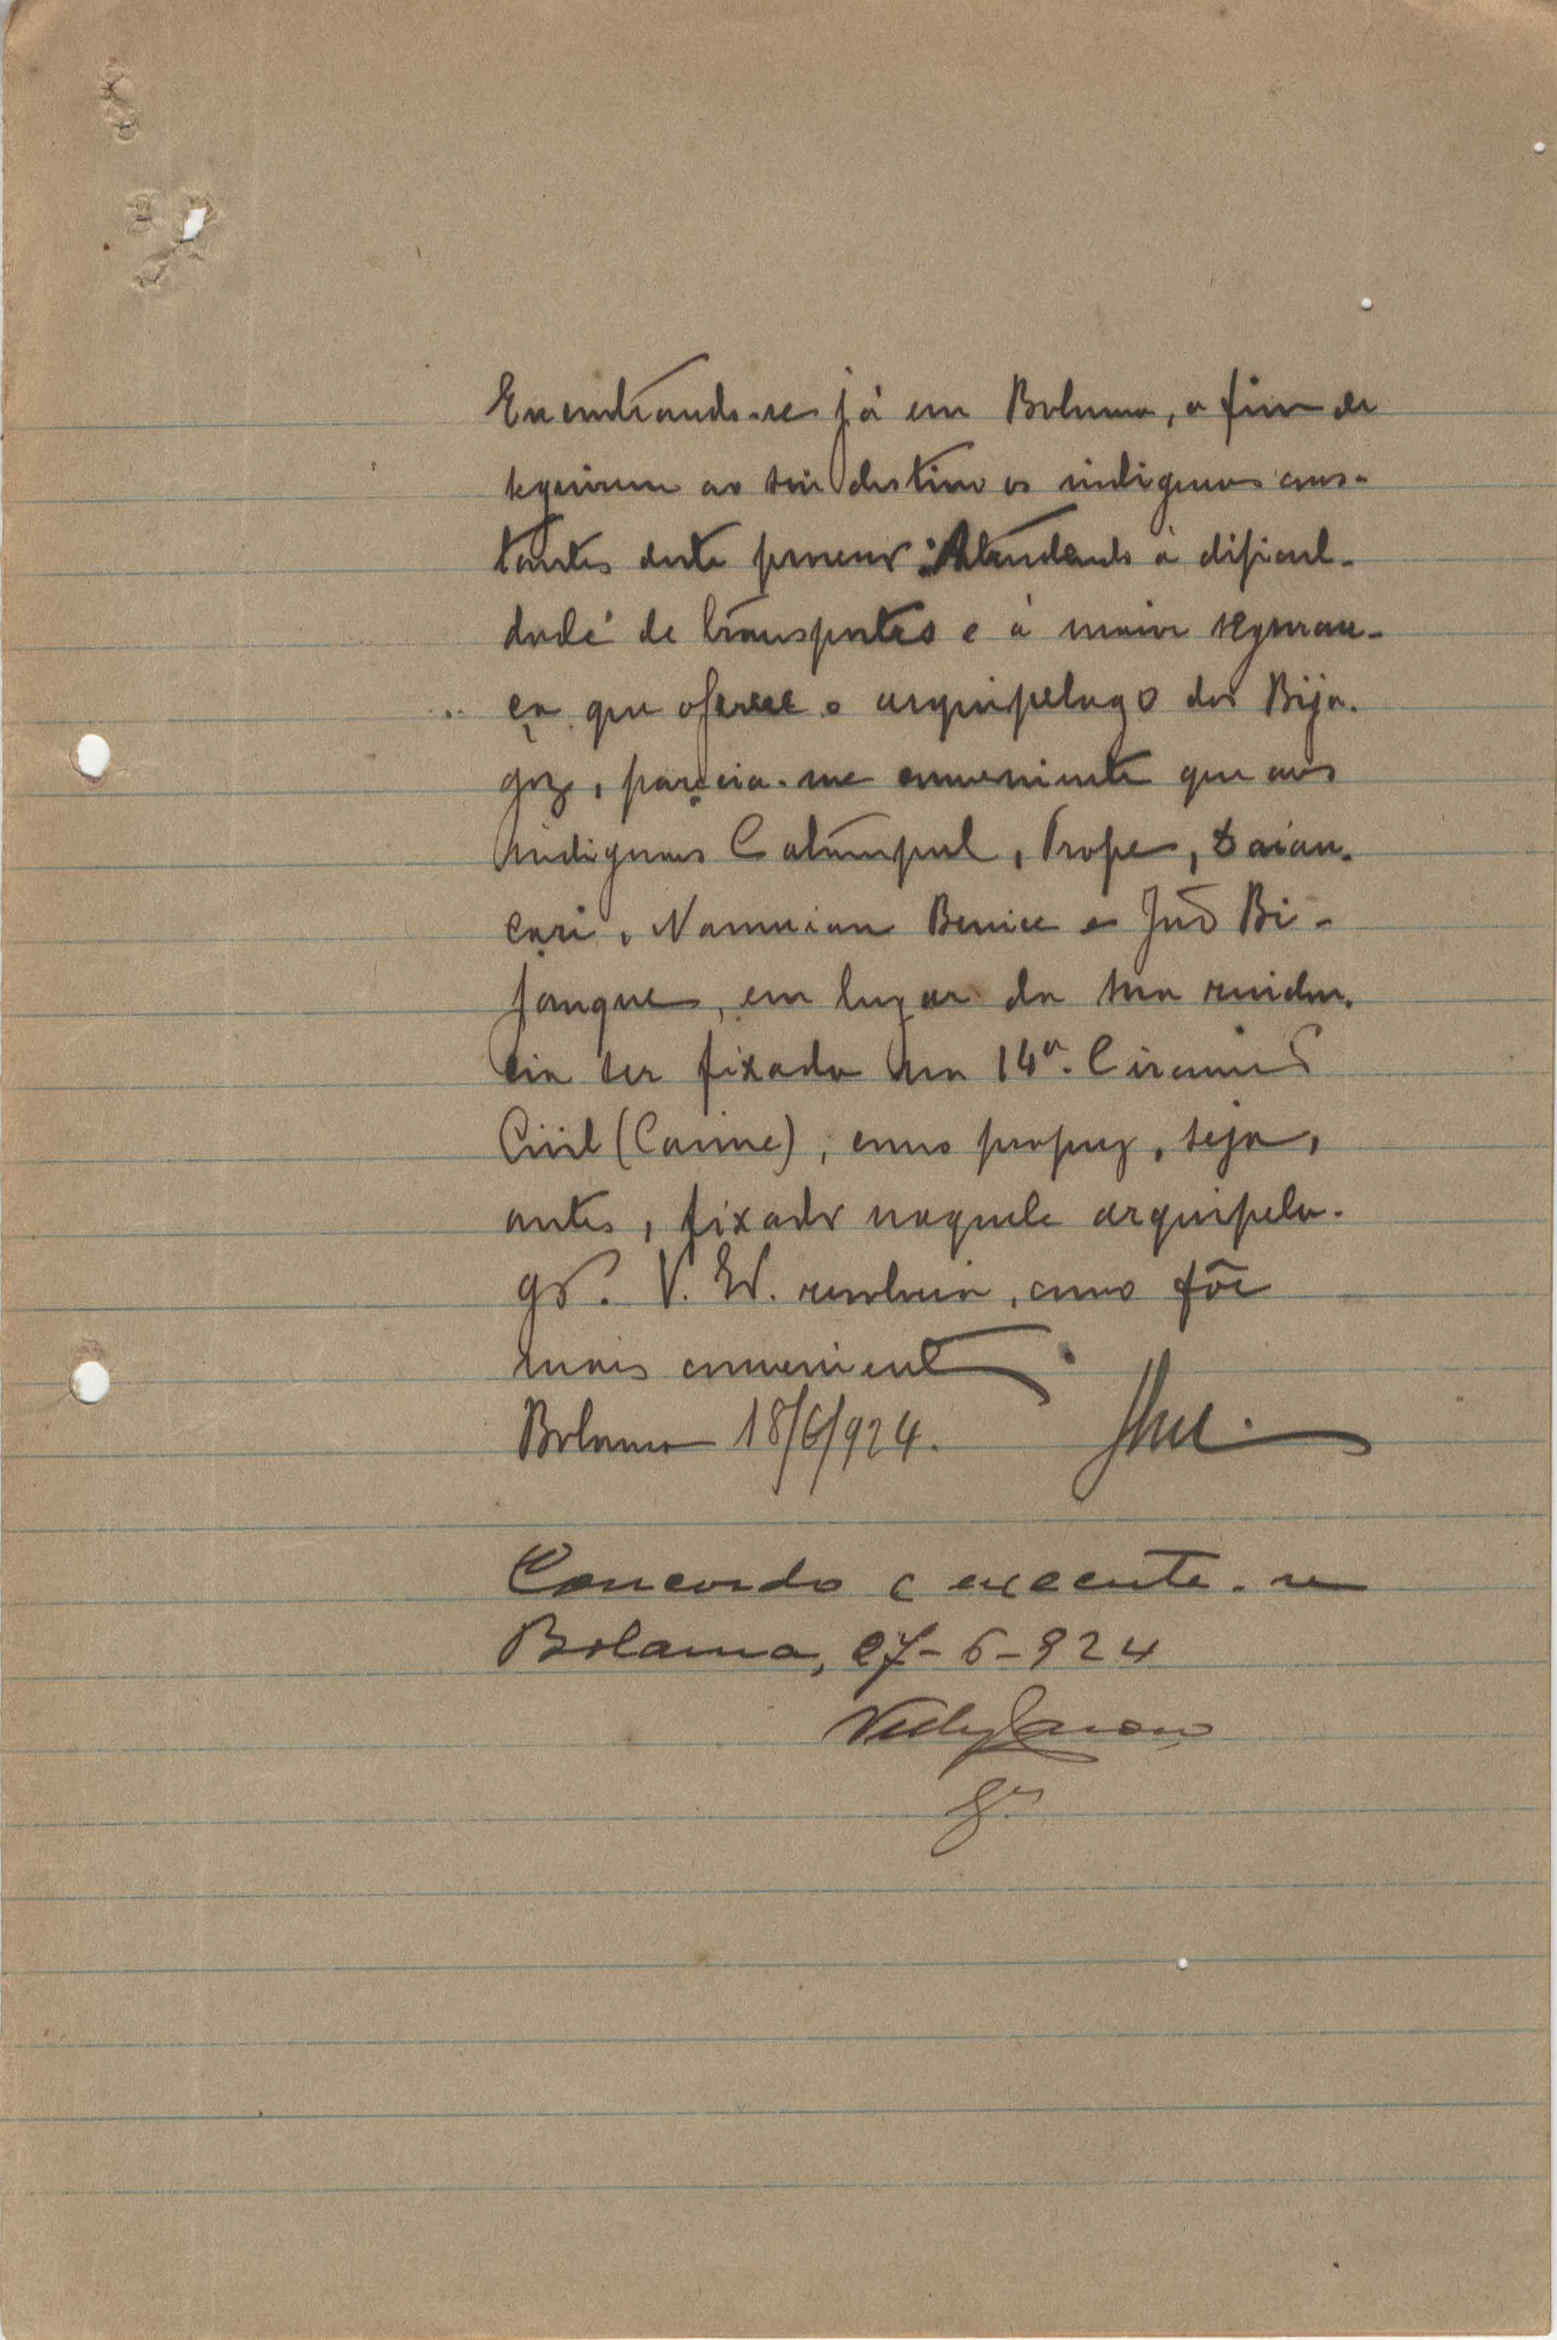 Encontrando-se já em Bolama, a fim de
seguirem ao seu destino os indigenas cons-
tantes deste processo: Atendendo à dificul-
dade de transportes e à maior seguran-
ça que oferece o arquipelago dos Bija-
goz, parecia-me conveniente que aos
indigenas Catumpul, Prope,
Benice e João Bi-
janque, em lugar da sua residen-
cia ser fixada na 14ª. Circuns
Civil (Cacine), como propuz, seja,
antes, fixado naquele arquipela-
go. V. Exª. resolverá, como fôr
mais conveniente.
Bolama 18/6/924.
Concordo e execute-se
Bolama, 27-6-924